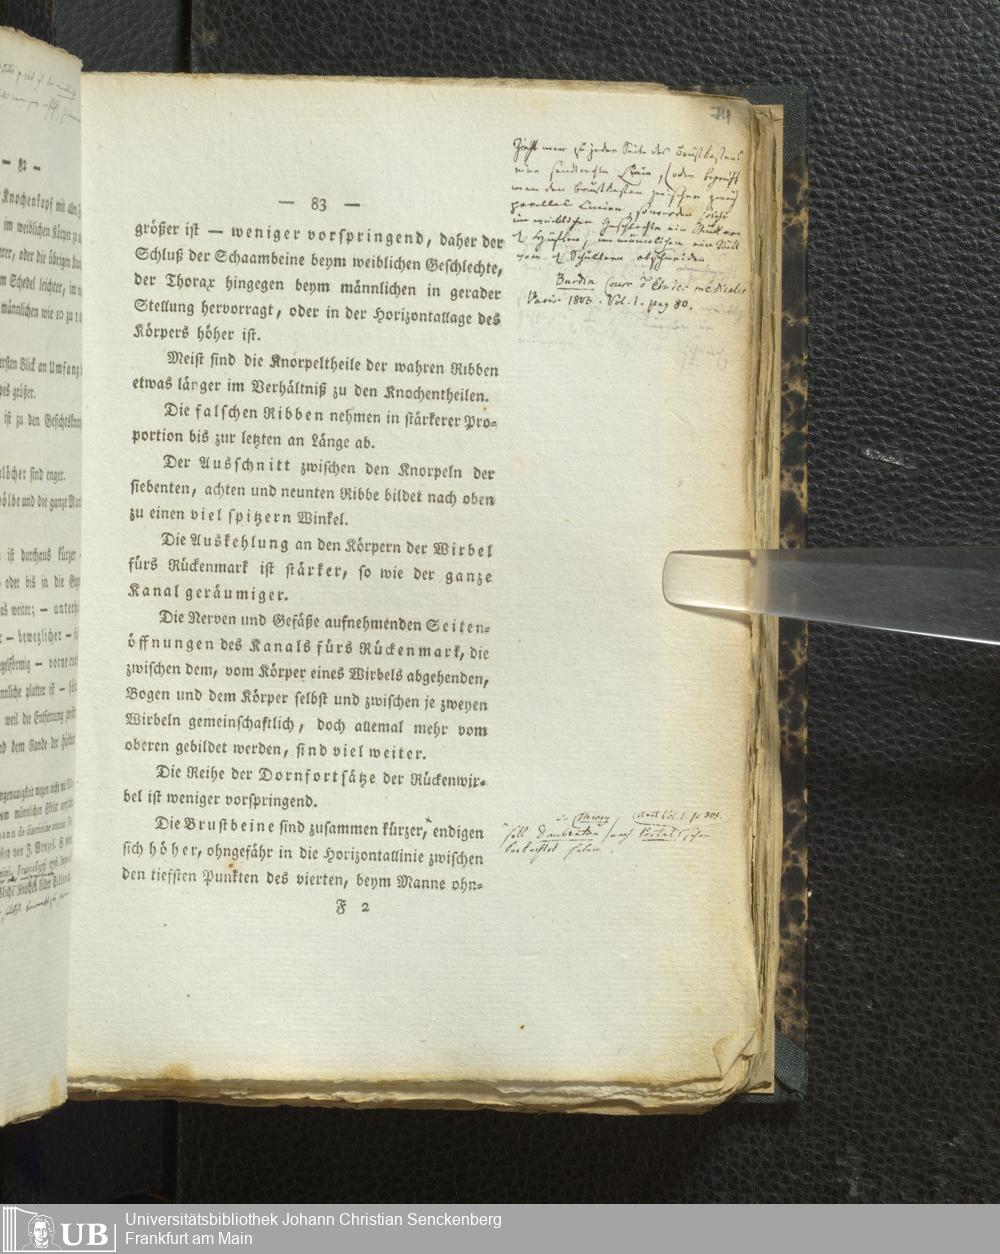 — 82 —
Knochenkopf mit allen
im weiblichen Körper zu
oder die übrigen
Schedel leichter, im
männlichen wie 10 zu
ersten Blick an Umfang
größer.
ist zu den
sind enger.
und die ganze
ist durchaus kürzer
oder bis in die
weiter; — unterha
— beweglicher —
— vorne
platter ist —
weil die Entfernung
dem Rande der
74
— 83 —
größer ist — weniger vorspringend, daher der
Schluß der Schaambeine beym weiblichen Geschlechte,
der Thorax hingegen beym männlichen in gerader
Stellung hervorragt, oder in der Horizontallage des
Körpers höher ist.
Meist sind die Knorpeltheile der wahren Ribben
etwas länger im Verhältniß zu den Knochentheilen.
Die falschen Ribben nehmen in stärkerer Pro=
portion bis zur letzten an Länge ab.
Der Ausschnitt zwischen den Knorpeln der
siebenten, achten und neunten Ribbe bildet nach oben
zu einen viel spitzern Winkel.
Die Auskehlung an den Körpern der Wirbel
fürs Rückenmark ist stärker, so wie der ganze
Kanal geräumiger.
Die Nerven und Gefäße aufnehmenden Seiten=
öffnungen des Kanals fürs Rückenmark, die
zwischen dem, vom Körper eines Wirbels abgehenden,
Bogen und dem Körper selbst und zwischen je zweyen
Wirbeln gemeinschaftlich, doch allemal mehr vom
oberen gebildet werden, sind viel weiter.
Die Reihe der Dornfortsätze der Rückenwir=
bel ist weniger vorspringend.
Die Brustbeine sind zusammen kürzer, endigen
sich höher, ohngefähr in die Horizontallinie zwischen
den tiefsten Punkten des vierten, beym Manne ohn=
F 2
Zieht man zu jeder Seite des Brustkastens
eine senkrechte Linie, (oder begreift
man den Brustkasten zwischen zwey
parallel Linien, so werden solche
im weiblichen Geschlechte ein Stück von
d Hüften, im männlichen ein Stück
von d Schultern abschneiden
Burdin Cours d'Etudes medicales
Paris 1803. Vol. 1. pag 80.
soll Daubenton nach Portal schon
beobachtet haben.
Universitätsbibliothek Johann Christian Senckenberg
Frankfurt am Main
UB